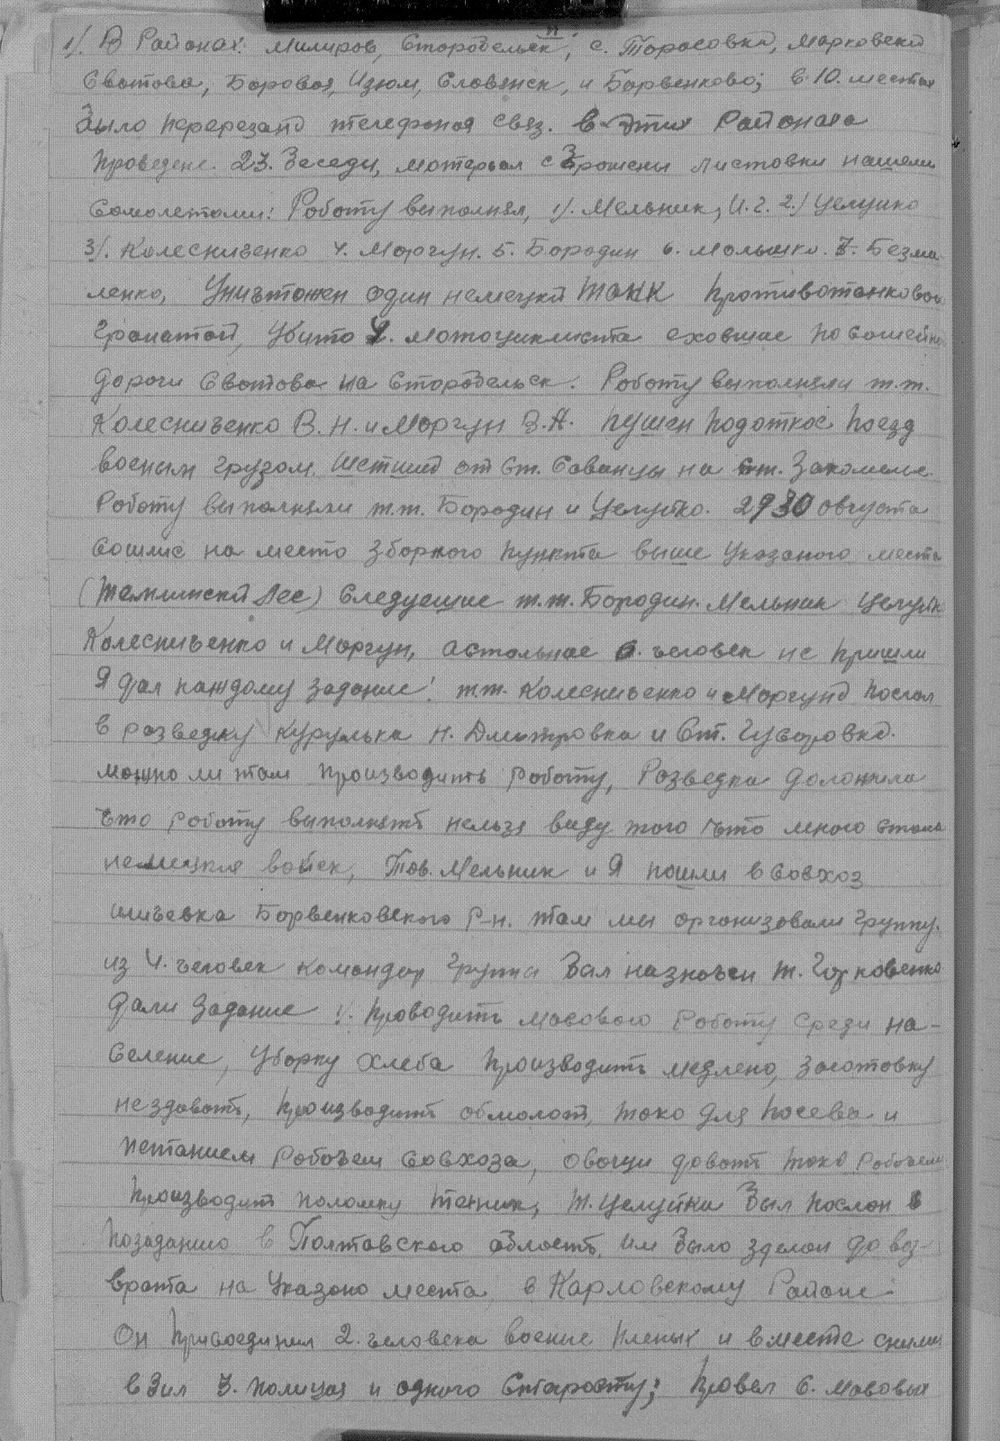 1/. В Районах: Милиров, Старобельск, с. Тарасовка, Марковский
Сватова, Боровоя, Изюм, Словянск, и Борвенково; в 10. местах
было перерезано телефоноя связ. в этих Районаха
проведене. 23. беседы, мотерьял сброшены листовки нашеми
самолетоми: Работу выполнял, 1/. Мельник, И.Г. 2./ Целуйко
3/. Колесниченко 4. Моргун. 5. Бородин 6. Молышко. 7. Безма-
ленко, Уничтожен один немецкй танк противотанковой
гранатой, убито 2. мотоциклиста еховшие по шосейно
дороги Сватова на Старобельск. Работу выполняли т.т.
Колесниченко В.Н. и Моргун В.А. пущен подоткос поезд
военым грузом, шетший от ст. Сованцы на ст. Закомелье.
Работу выполняли т.т. Бородин и Целуйко. 29 30 августа
сошлис на место зборного пункта выше указаного места
(Теплинский Лес) следуещие т.т. Бородин. Мельник Целуйк
Колесниченко и Моргун, астольные 6. человек не пришли
Я дал каждому задание! т.т. Колесниченко и Моргуно послал
в розведку Курулька Н. Дмитровка и ст. Гусаровка.
можно ли там производить работу, Розведка доложила
что работу выполнять нельзя виду того что много стоит
немецких войск, Тов. Мельник и Я пошли в совхоз
Иличевка Борвенковского Р-н. там мы организовали группу.
из 4. человек командор группы был назночен т.
дали задание 1/. проводить масового работу среди на-
селение, уборку хлеба производить медлено, заготовку
нездовать, производить обмолот, токо для посева и
петанием рабочем совхоза, овощи довать токо рабочем
производит поломку техник, т. Целуйка был послон в
позаданию в Полтавского область, им было зделон до воз-
врата на указоно места в Карловскому Районе.
Он присоединил 2. человека военые пленых и вместе с ними
взял 3. полицая и одного старосту; провел 6. мосовых